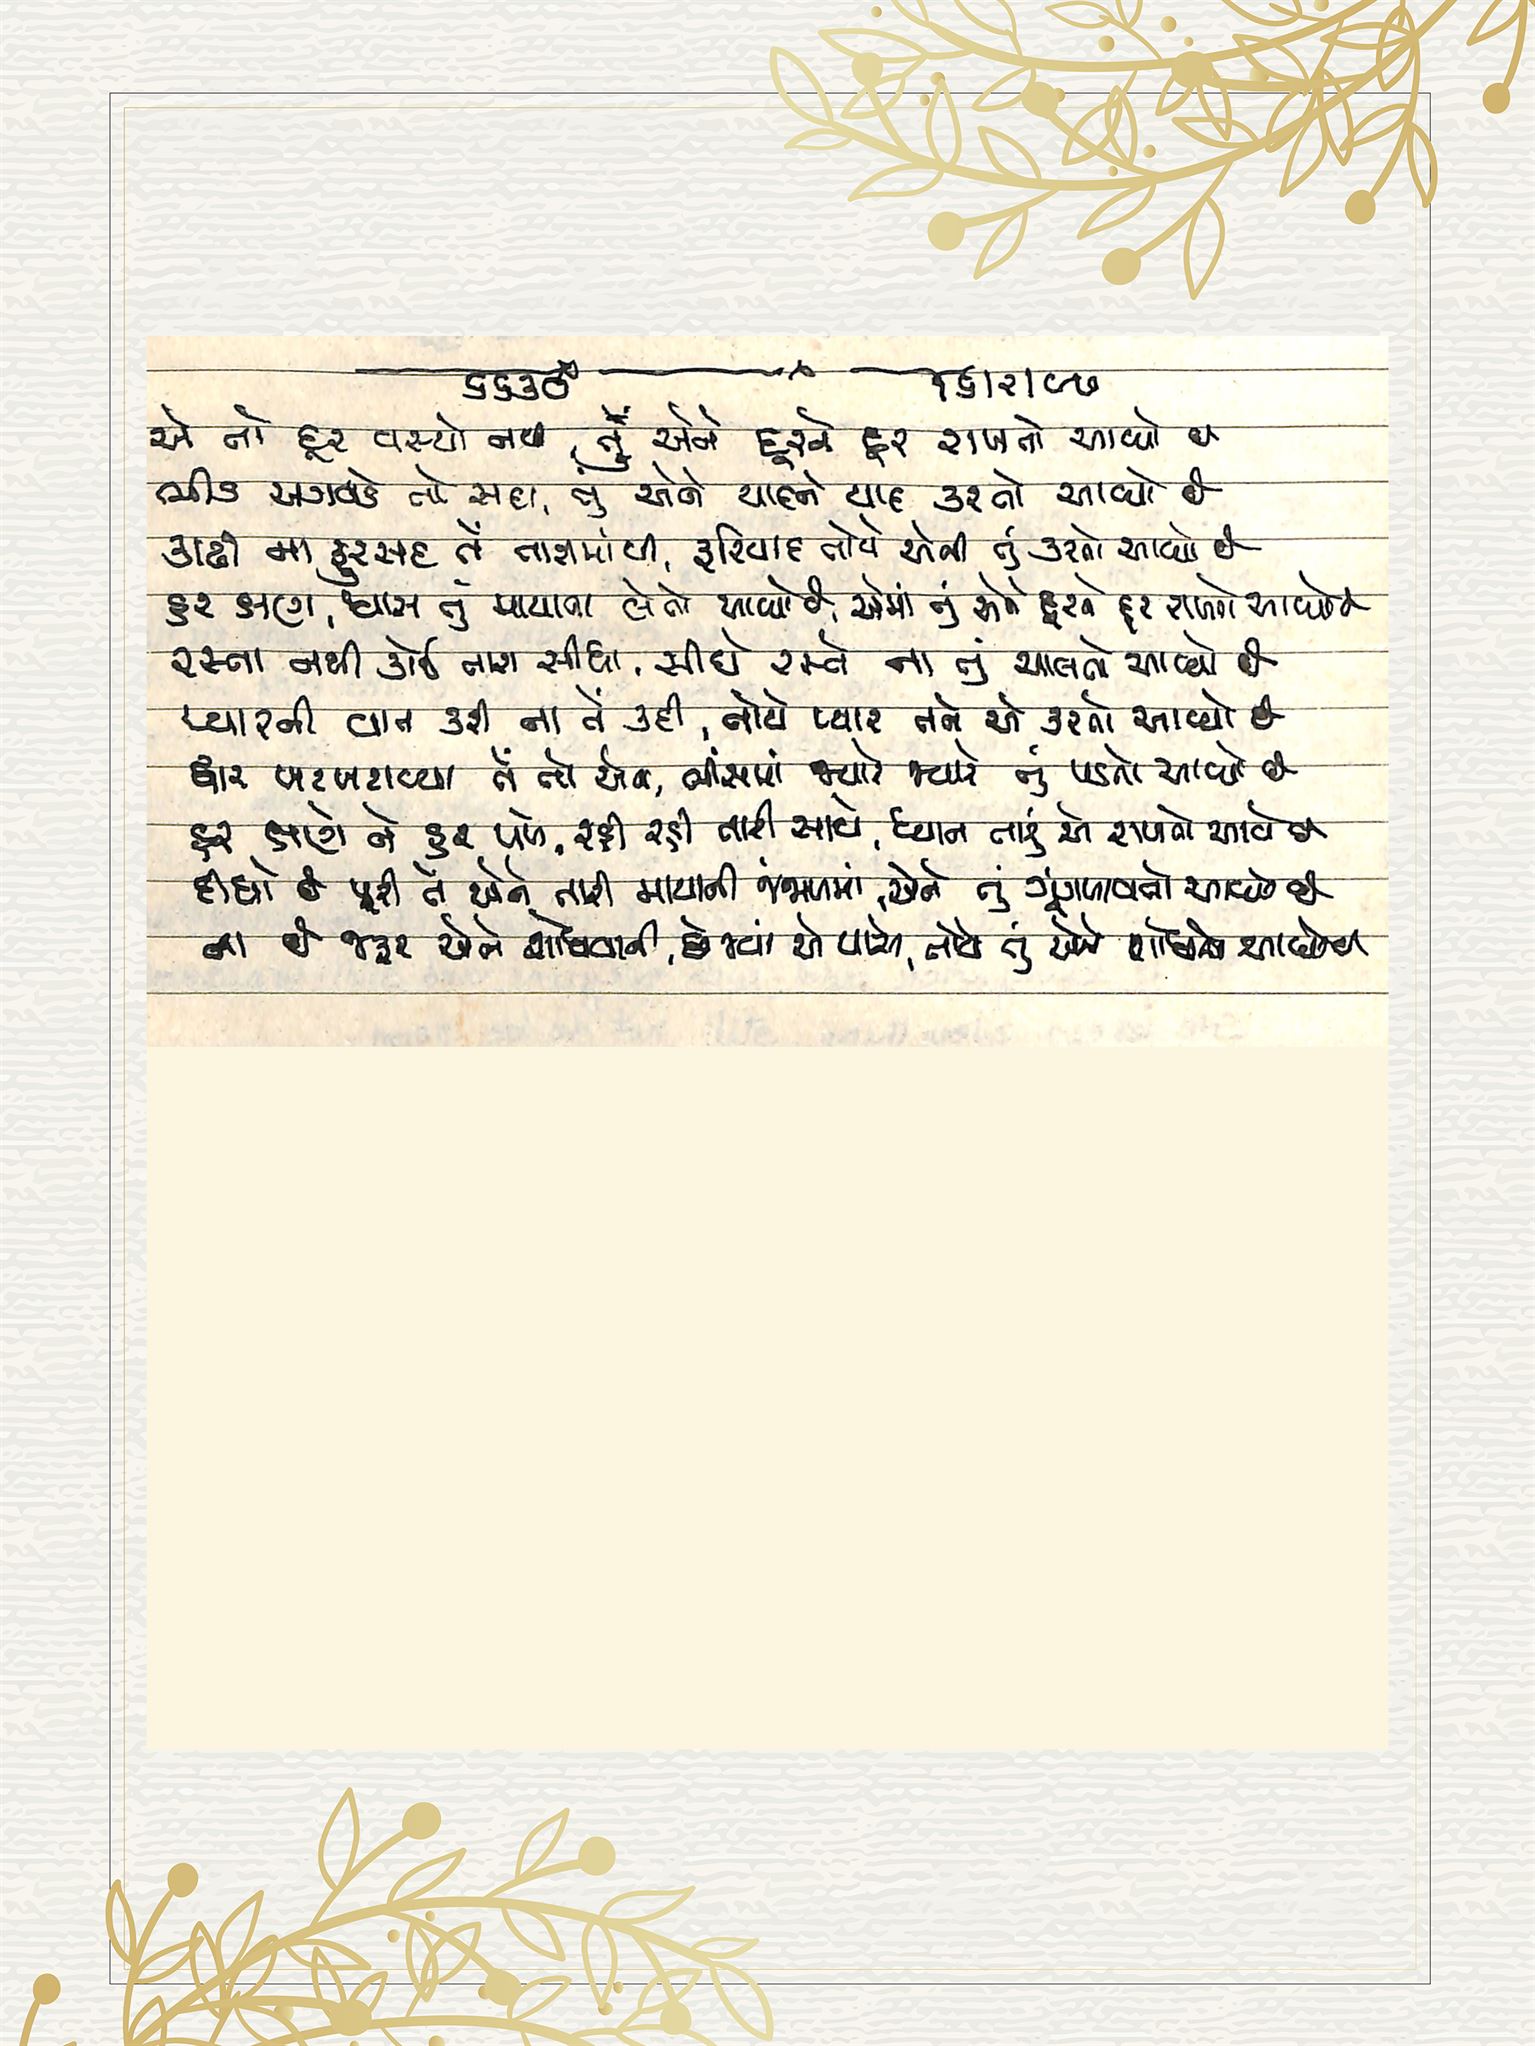 ૬૬૩૦ ૧૬।૨।૯૭
એ તો દૂર વસ્યો નથી, તું એને દૂરને દૂર રાખતો આવ્યો છે
ભીડ અગવડે તો સદા, તું એને યાદને યાદ કરતો આવ્યો છે
કાઢી ના ફુરસદ તેં તારામાંથી, ફરિયાદ તોયે એની તું કરતો આવ્યો છે
હર ક્ષણે, શ્વાસ તું માયાના લેતો આવ્યો છે, એમાં તું એને દૂરને દૂર રાખતો આવ્યો છે
રસ્તા નથી કોઈ તારા સીધા, સીધે રસ્તે ના તું ચાલતો આવ્યો છે
પ્યારની વાત કરી ના તેં કદી, તોયે પ્યાર તને એ કરતો આવ્યો છે
દ્વાર ખટખટાવ્યા તેં તો એના, ભીંસમાં જ્યારે જ્યારે તું પડતો આવ્યો છે
હર ક્ષણે ને હર પળે, રહી રહી તારી સાથે, ધ્યાન તારું એ રાખતો આવે છે
દીધો છે પૂરી તેં એને તારી માયાની જંજાળમાં, એને તું ગૂંગળાવતો આવ્યો છે
ના છે જરૂર એને શોધવાની, છે જ્યાં એ પાસે, તોયે તું એને શોધતો આવ્યો છે